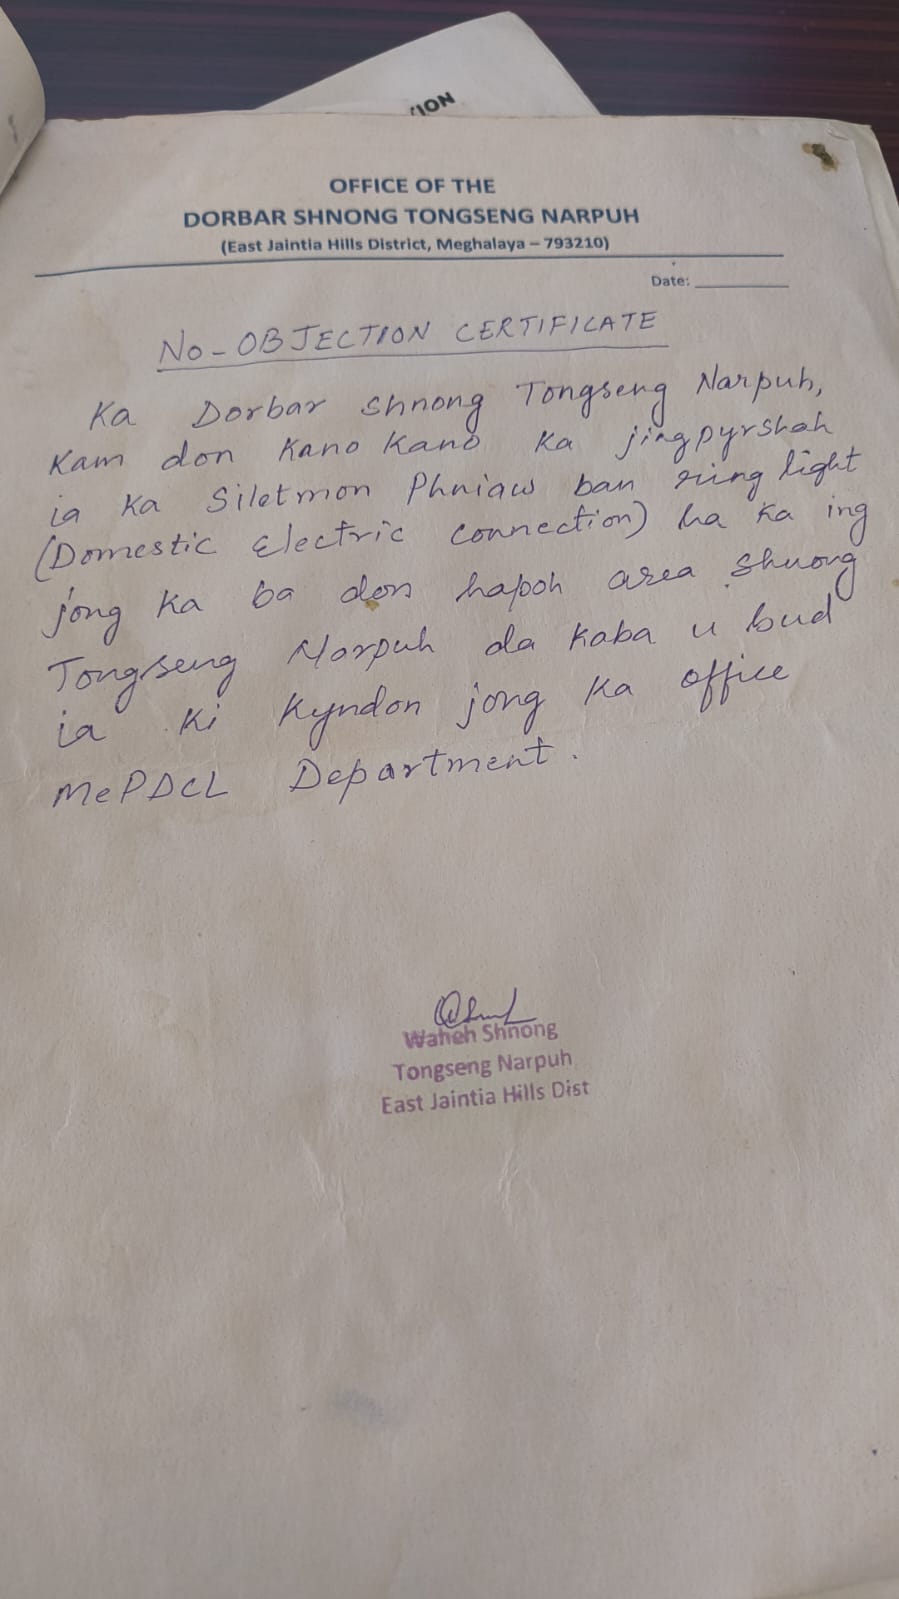 ION
OFFICE OF THE
DORBAR SHNONG TONGSENG NARPUH
(East Jaintia Hills District, Meghalaya – 793210)
Date: ________
NO-OBJECTION CERTIFICATE
Ka Dorbar Shnong Tongseng Narpuh,
Kam don Kano Kano Ka jingpyrshah
ia Ka Siletmon Phniaw ban ring light
(Domestic Electric Connection) ha Ka ing
jong Ka ba don hapoh area Shnong
Tongseng Narpuh da Kaba u bud
ia Ki Kyndon jong Ka office
MePDCL Department.
Waheh Shnong
Tongseng Narpuh
East Jaintia Hills Dist